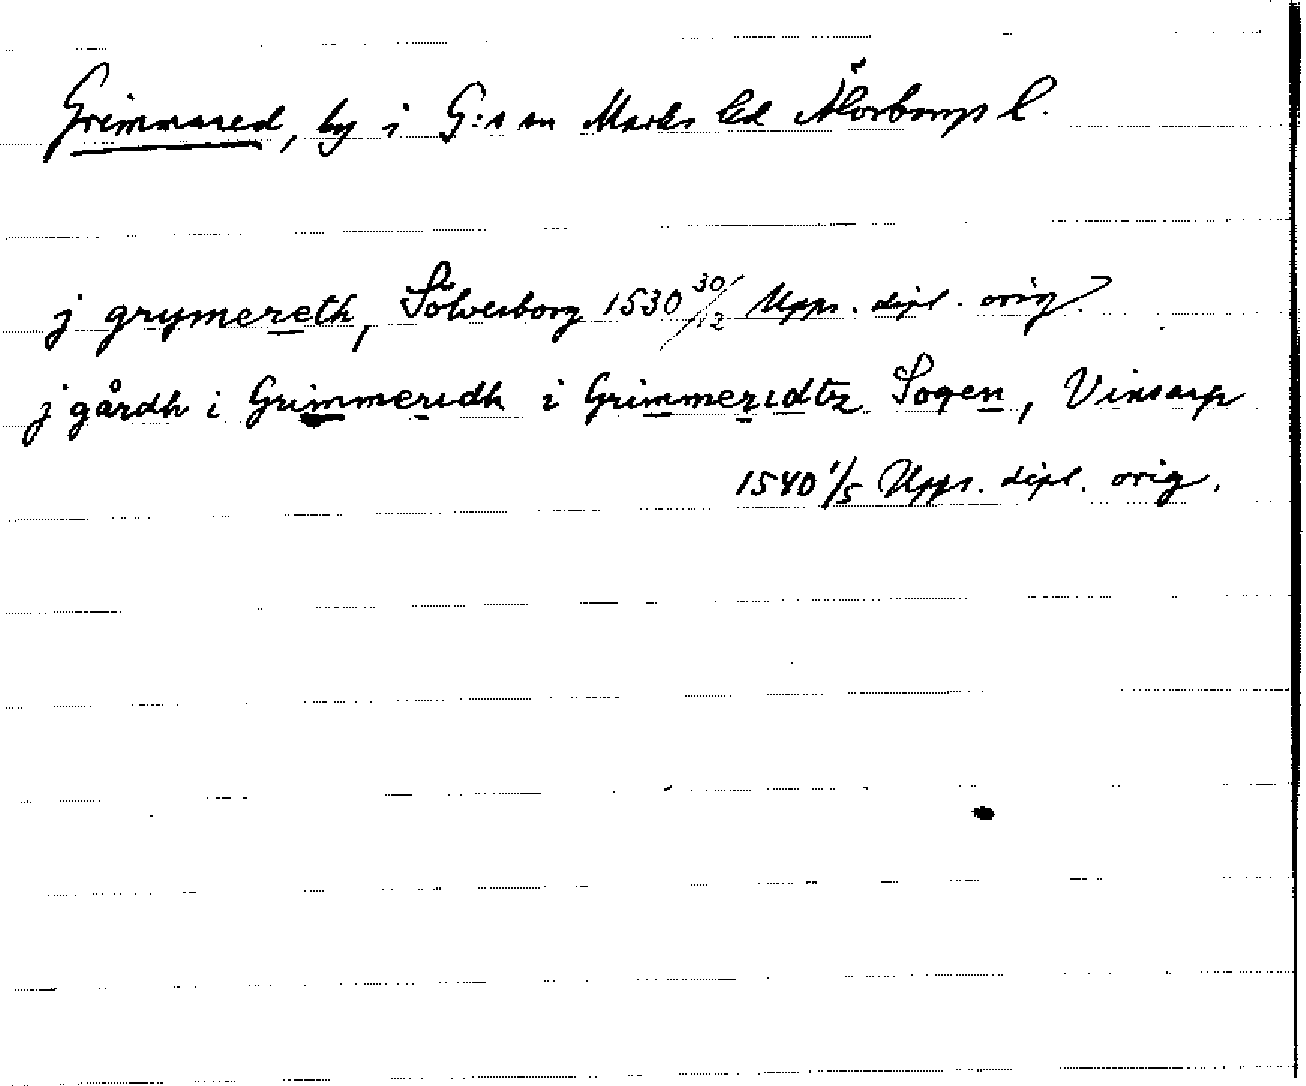 Grimmared, by i G:s sn Marks hd Älvsborgs l.
j grymereth, Sölvesborg 1530 30/12 Upps. dipl. orig.
j gårdh i Grimmeredh i Grimmeredtz Sogen, Vinsarp
1540 1/5 Upps. dipl. orig.